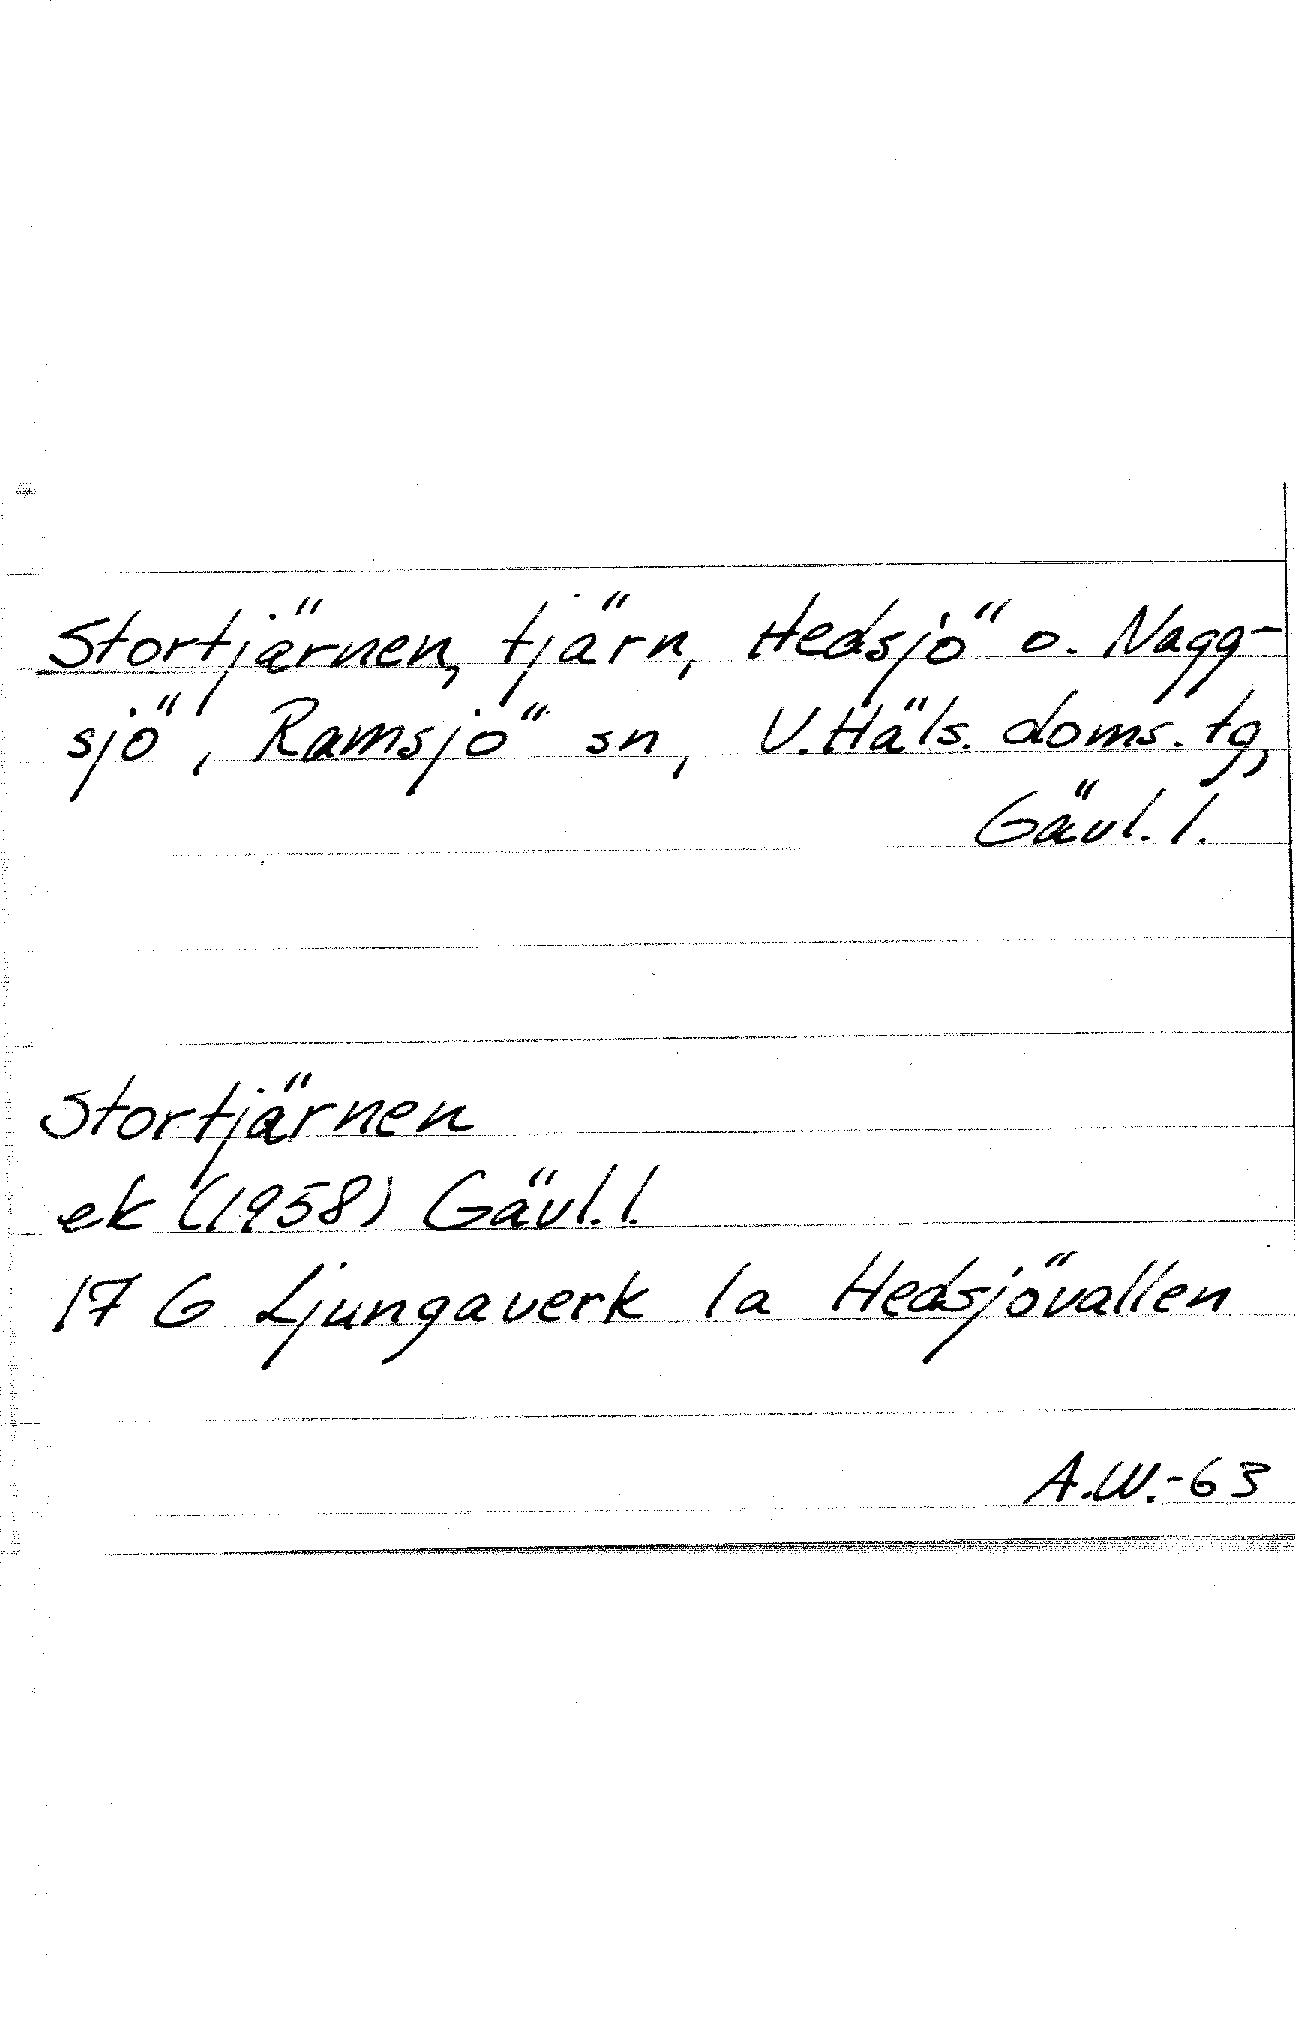 Stortjärnen, tjärn, Hedsjö o. Nagg-
sjö, Ramsjö sn, V.Häls. doms. tg,
Gävl. l.
Stortjärnen
ek (1958) Gävl. l.
17 G Ljungaverk 1a Hedsjövallen
A.W.-63